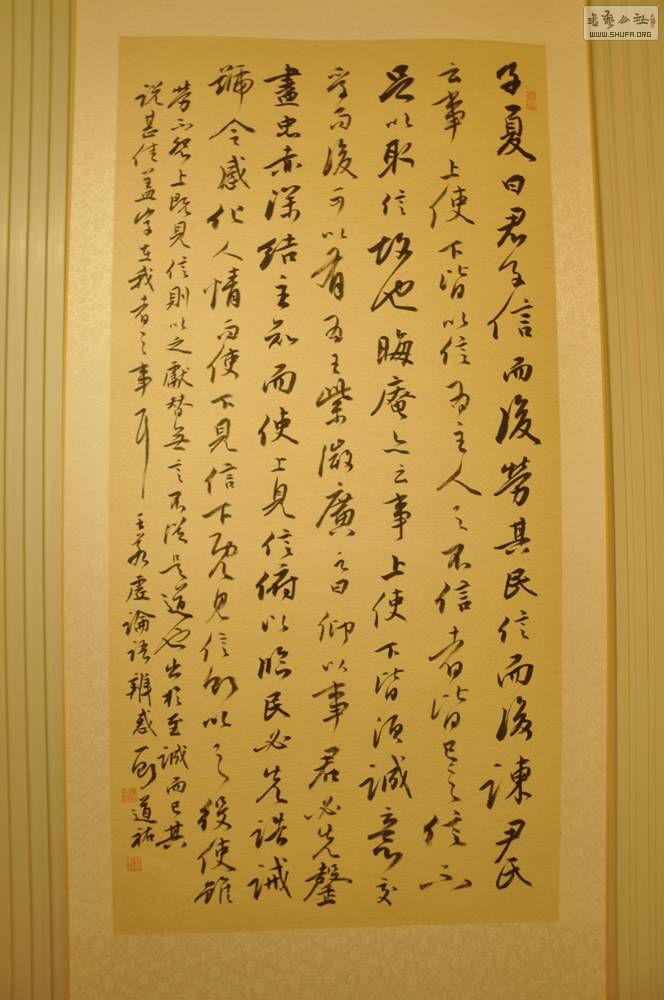 子夏曰君子信而後勞其民信而後諫尹氏
云事上使下皆以信為主人之不信者皆己之信不
足以取信故也晦庵亦云事上使下皆須誠意交
孚而後可以有為王紫微廣之曰仰以事君必先罄
盡忠赤深結主知而使上見信俯以臨民必先誥誡
號令感化人情而使下見信下既見信則以之役使雖
勞不怨上既見信則以之獻替無言不從是道也出於至誠而已其
說甚佳蓋字在我者之事耳 王若虛論語辨惑 劉道祐
書藝公社
WWW.SHUFA.ORG